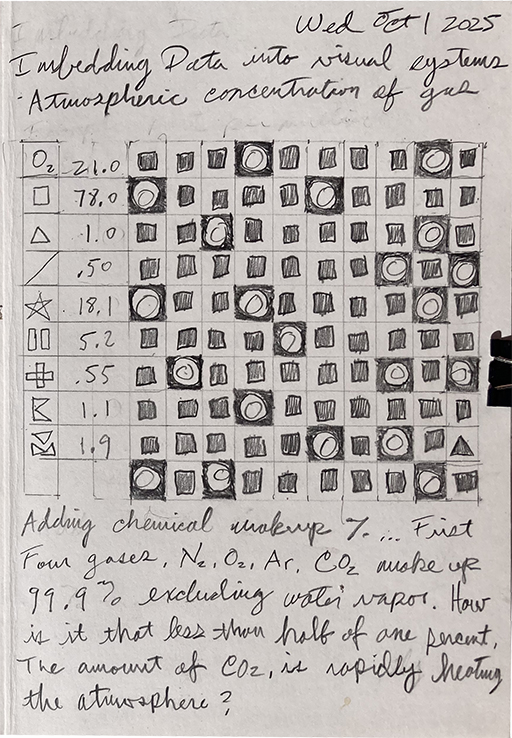 Wed Oct 1 2025
Imbedding Data into visual systems
Atmospheric concentration of gas
O₂ 21.0
78.0
1.0
.50
18.1
5.2
.55
1.1
1.9
Adding chemical makeup %... First
Four gases, N₂, O₂, Ar, CO₂ make up
99.9% excluding water vapor. How
is it that less than half of one percent,
The amount of CO₂, is rapidly heating
the atmosphere?